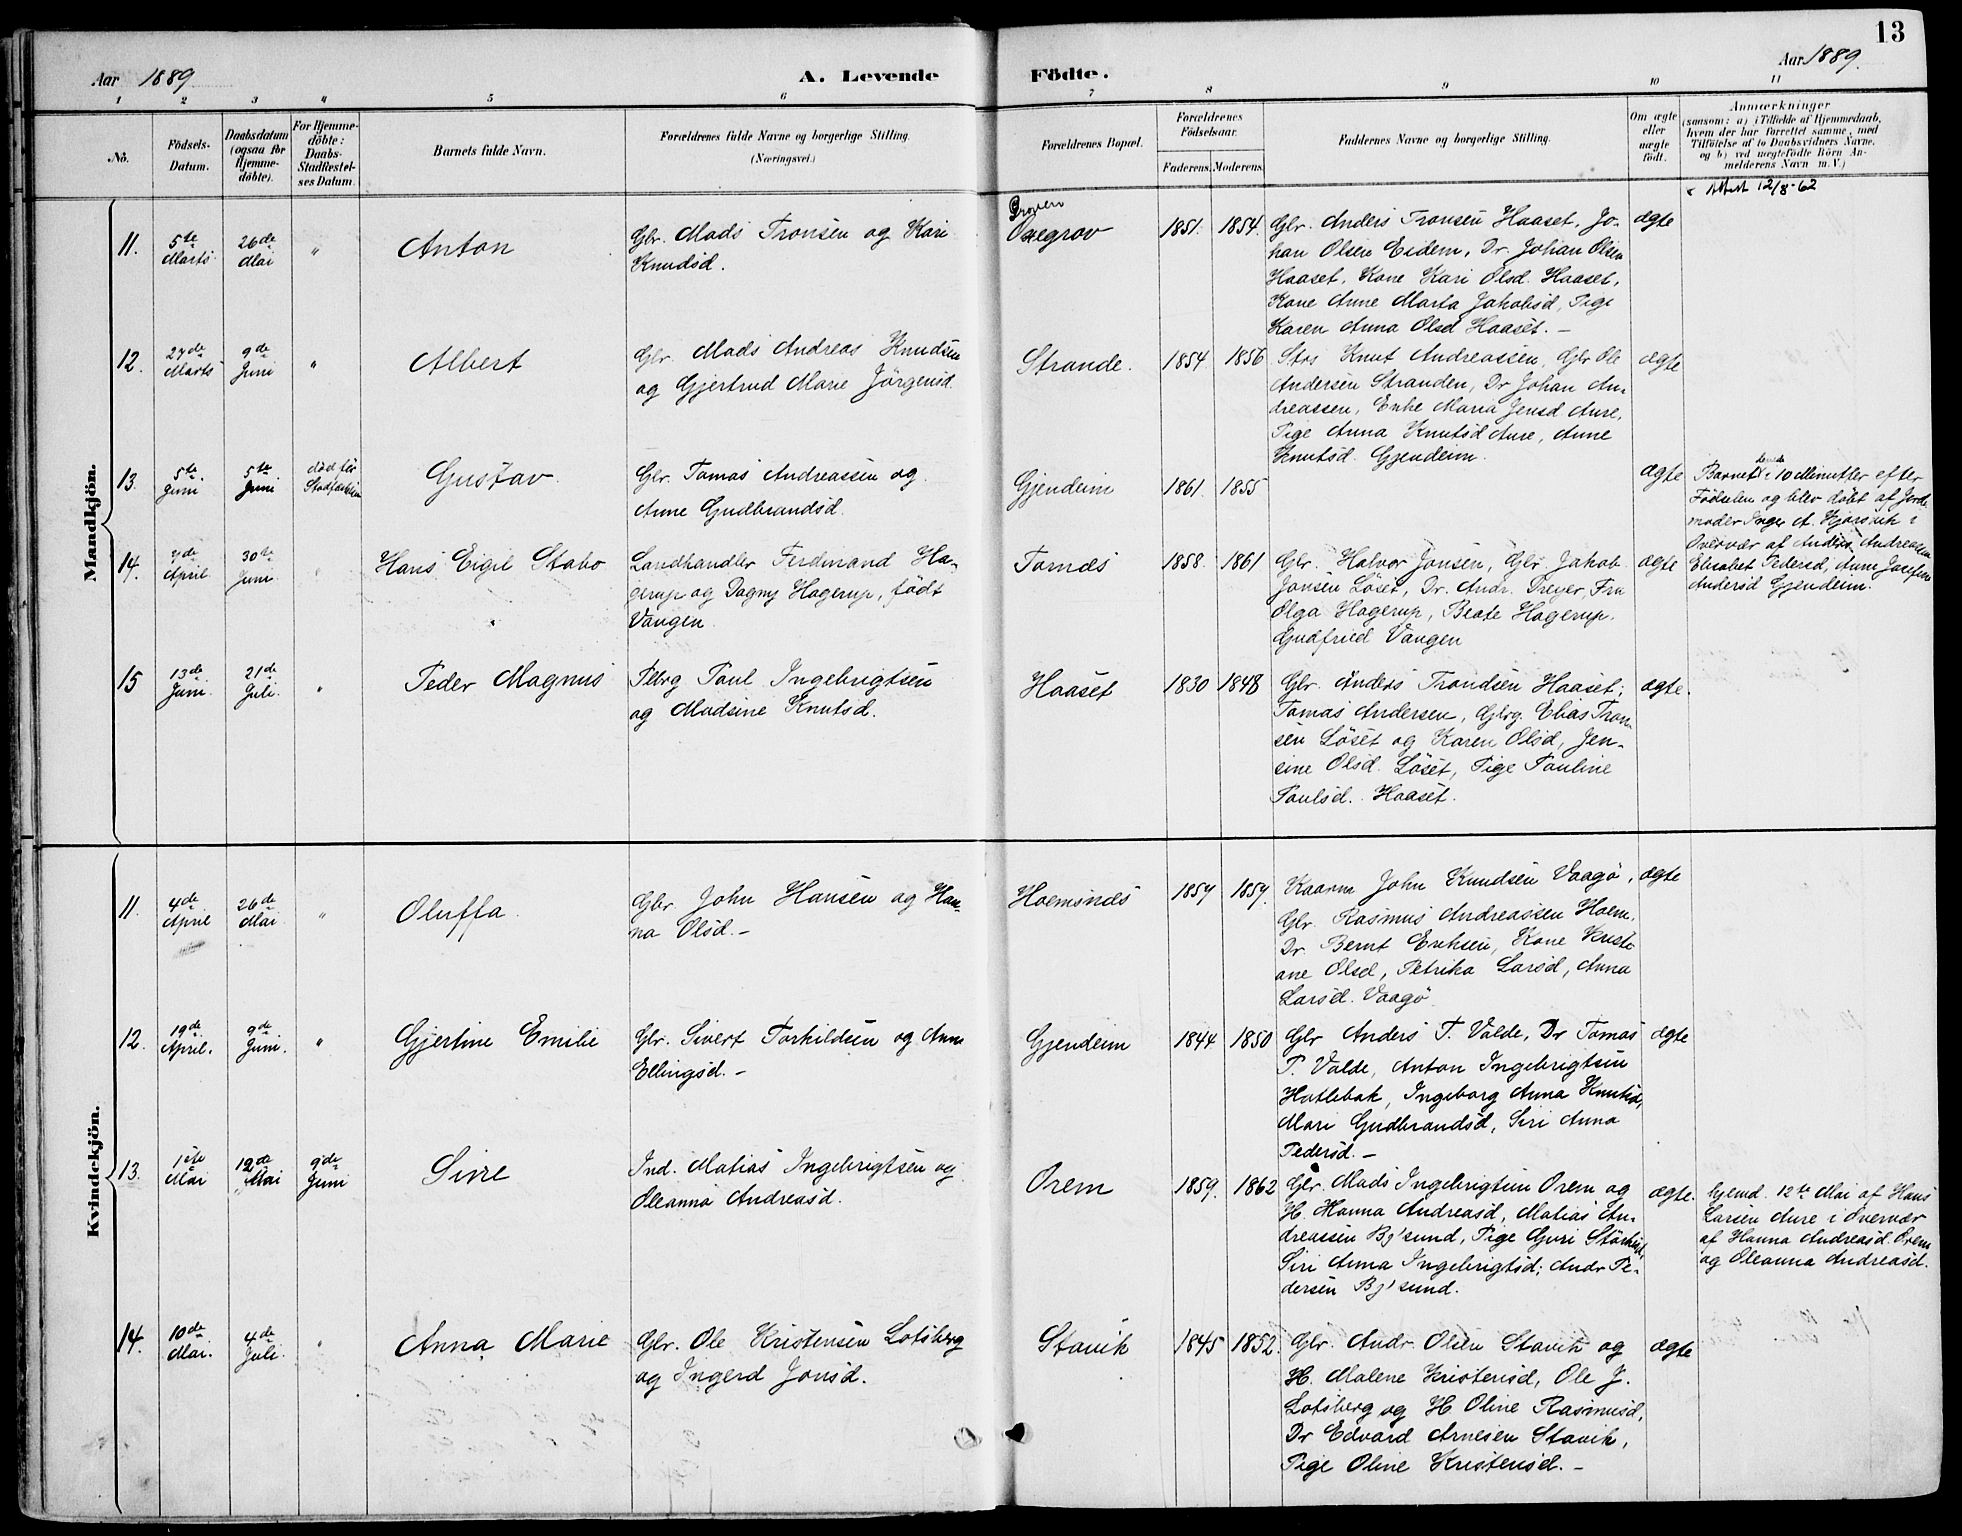 13
Aar 1889
A. Levende
Födte.
Aar 1889.
1 2 3 4 5 6 7 8 9 10 11
No.
Födsels-
Datum.
Daabsdatum
(ogsaa for
Hjemme-
döbte).
For Hjemme-
döbte:
Daabs-
Stadfæstel-
ses Datum.
Barnets fulde Navn.
Forældrenes fulde Navne og borgerlige Stilling.
(Næringsvei.)
Forældrenes Bopæl.
Forældrenes
Födselsaar.
Faderens. Moderens.
Faddernes Navne og borgerlige Stilling.
Om ægte
eller
uægte
födt.
Anmærkninger
(saasom: a) i Tilfælde af Hjemmedaab,
hvem der har forrettet samme, med
Tilföielse af to Daabsvidners Navne,
og b) ved uægtefödte Börn An-
melderens Navn m. V.)
Attest 12/8-62
Mandkjön.
11.
5te
Marts
26de
Mai
"
Anton
Gbr. Mads Tronsen og Kari
Knudsd.
Oxegrov
1851. 1854.
Gbr. Anders Tronsen Haaset, Jo-
han Olsen Eidem, Dr. Johan Olsen
Haaset, Kone Kari Olsd. Haaset,
Kone Anne Marta Jakobsd, Pige
Karen Anna Olsd Haaset. –
ægte
12.
27de
Marts
9de
Juni
"
Albert
Gbr. Mads Andreas Knudsen
og Gjertrud Marie Jörgensd.
Strande.
1854. 1856
Knut Andreassen, Gbr Ole
Andersen Stranden, Dr Johan An-
dreassen, Enke Maria Jensd Aure,
Pige Anna Knutsd Aure, Anne
Knutsd. Gjendeim.
ægte
13.
5te
Juni
5te
Juni
död för
Gustav
Gbr. Tomas Andreassen og
Anne Gudbrandsd.
Gjendeim
1861. 1855
ægte
Barnet levede i 10 Minutter efter
Födselen og blev döbt af Jord-
moder Inger A. i
Overvær af Anders Andreassen
Elisabet Pedersd, Anne Josefine
Andersd Gjendeim.
14.
April.
30te
Juni
Hans Eigil Stabo
Landhandler Ferdinand Ha-
gerup og Dagny Hagerup, födt
Vangen
Tornes
1858. 1861
Gbr. Halvor Jonsen, Gbr. Jakob
Jonsen Löset, Dr. Andr. Dreyer, Fru
Olga Hagerup, Beate Hagerup,
Gudfried Vangen
ægte
15
13de
Juni.
21de
Juli.
"
Peder Magnus
Paul Ingebrigtsen
og Madsine Knutsd.
Haaset
1830 1848
Gbr. Anders Trondsen Haaset,
Tomas Andersen, Elias Tron-
sen Löset og Karen Olsd, Jen-
sine Olsd. Löset, Pige Pauline
Paulsd. Haaset.
ægte.
Kvindekjön.
11.
4de
April
26de
Mai
"
Oluffa.
Gbr. John Hansen og Han-
na Olsd. –
Holmsnes
1857 1859.
Kaarm John Knudsen Vaagö,
Gbr. Rasmus Andreassen Holm,
Dr. Bernt Eriksen, Kone Kristi-
ane Olsd, Petrika Larsd, Anna
Larsd. Vaagö
ægte
12.
19de
April.
9de
Juni.
"
Gjertine Emilie
Gbr. Sivert Torkildsen og Anne
Ellingsd. –
Gjendeim
1844 1850
Gbr Anders T. Valde, Dr Tomas
T. Valde, Anton Ingebrigtsen
Hatlebak, Ingeborg Anna Knutsd,
Mari Gudbrandsd, Siri Anna
Pedersd. –
ægte
13.
1ste
Mai
12de
Mai
9de
Juni
Sivre
Ind. Matias Ingebrigtsen og
Oleanna Andreasd.
Orem
1859. 1862
Gbr. Mads Ingebrigtsen Orem og
H. Hanna Andreasd, Matias An-
dreassen Bj'sund, Pige Guri
Siri Anna Ingebrigtsd; Andr Pe-
dersen Bj'sund.
ægte.
hjemd. 12te Mai af Hans
Larsen Aure i Overvær
af Hanna Andreasd. Orem
og Oleanna Andreasd.
14.
10de
Mai.
4de
Juli.
"
Anna Marie
Gbr. Ole Kristensen Lotsberg
og Ingerd Jonsd.
Stavik
1845 1852.
Gbr. Andr Olsen Stavik og
H. Malene Kristensd, Ole J.
Lotsberg og H Oline Rasmusd,
Dr Edvard Arnesen Stavik,
Pige Oline Kristensd. –
ægte